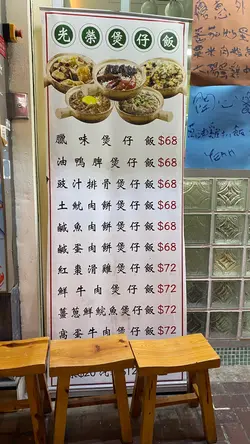 光榮煲仔飯
臘味煲仔飯$68
油鴨髀煲仔飯$68
豉汁排骨煲仔飯$68
土魷肉餅煲仔飯$68
鹹魚肉餅煲仔飯$68
鹹蛋肉餅煲仔飯$68
紅棗滑雞煲仔飯$72
鮮牛肉煲仔飯$72
薑蔥鮮魷魚煲仔飯$72
窩蛋牛肉煲仔飯$72